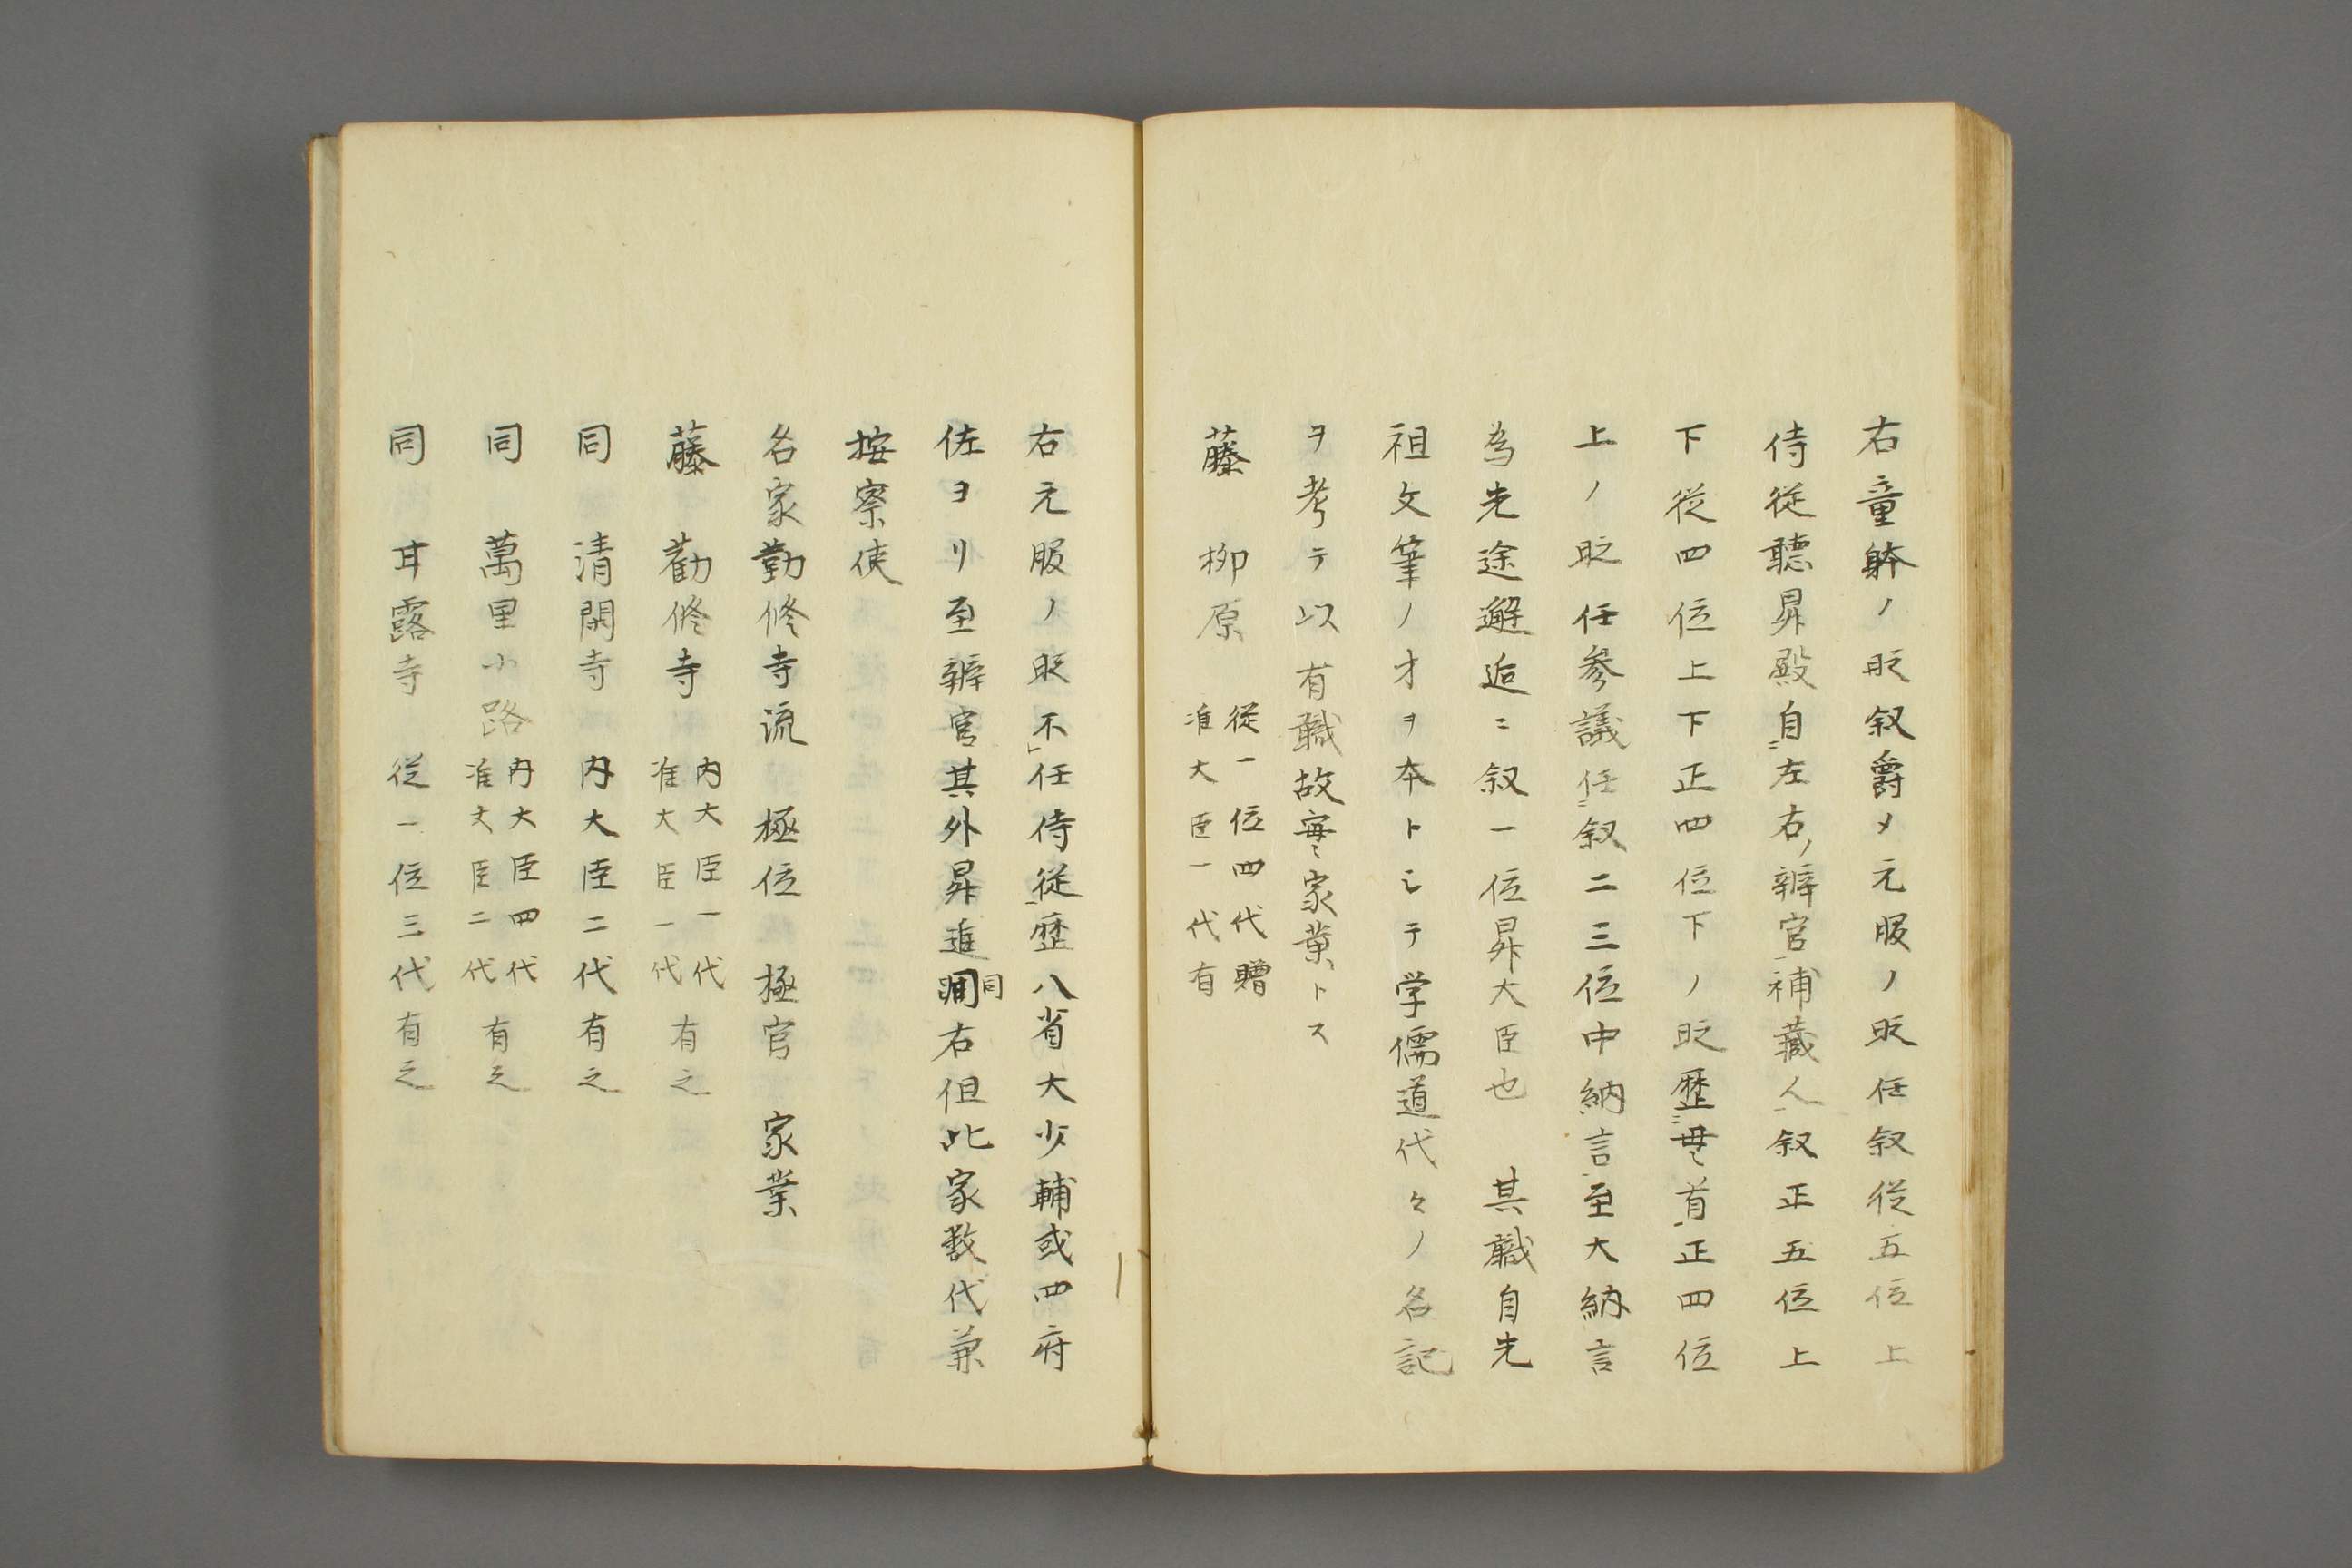 右童躰ノ時叙爵メ元服ノ時任叙従五位上
侍従聴昇殿自ニ左右ノ辨官補蔵人叙正五位上
下従四位上下正四位下ノ時歴ニ貫首正四位
上ノ時任参議任ニ叙二三位中納言至大納言
為先途邂逅ニ叙一位昇大臣也　其職自先
祖文筆ノオヲ本トシテ学儒道代々ノ名記
ヲ考テ以有職故実家業トス
藤　柳原　従一位四代贈
准大臣一代有
右元服ノ時不任侍従歴八省大少輔或四府
佐ヨリ至辨官其外昇進同右但此家数代兼
按察使
名家勤修寺流　極位　極官　家業
藤　勧修寺　内大臣一代
准大臣一代　有之
同　清閑寺　内大臣二代有之
同　萬里小路　内大臣四代
准大臣二代　有之
同　甘露寺　従一位三代有之